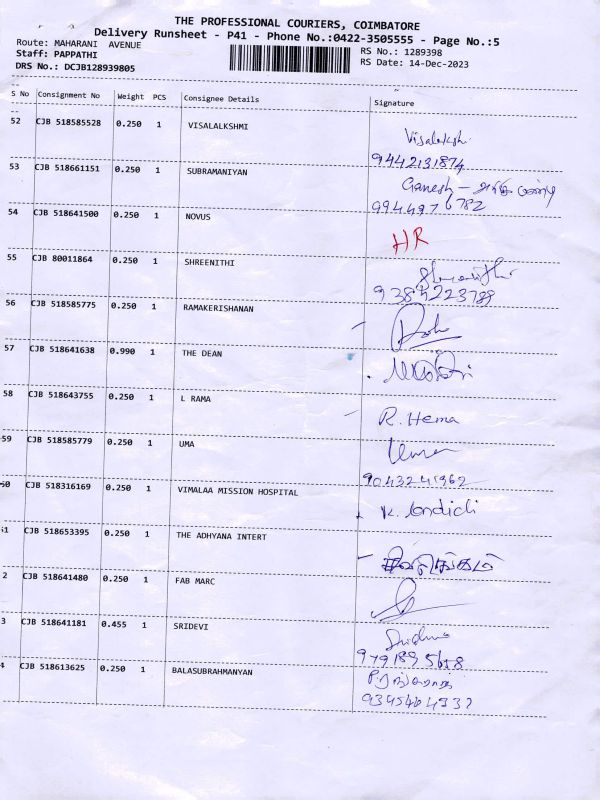 THE PROFESSIONAL COURIERS, COIMBATORE
Delivery Runsheet - P41 - Phone No.:0422-3505555 - Page No.:5
Route: MAHARANI AVENUE
RS No.: 1289398
Staff: PAPPATHI
RS Date: 14-Dec-2023
DRS No.: DCJB128939805
S No Consignment No Weight PCS Consignee Details Signature
52 CJB 518585528 0.250 1 VISALALKSHMI
Visalakshi
9442131874
53 CJB 518661151 0.250 1 SUBRAMANIYAN
Ganesh -
9944976782
54 CJB 518641500 0.250 1 NOVUS
HR
55 CJB 80011864 0.250 1 SHREENITHI
9384223789
56 CJB 518585775 0.250 1 RAMAKERISHANAN
57 CJB 518641638 0.990 1 THE DEAN
58 CJB 518643755 0.250 1 L RAMA
R. Hema
59 CJB 518585779 0.250 1 UMA
Uma
9043241962
60 CJB 518316169 0.250 1 VIMALAA MISSION HOSPITAL
K.
61 CJB 518653395 0.250 1 THE ADHYANA INTERT
2 CJB 518641480 0.250 1 FAB MARC
3 CJB 518641181 0.455 1 SRIDEVI
9791895618
4 CJB 518613625 0.250 1 BALASUBRAHMANYAN
9345464332